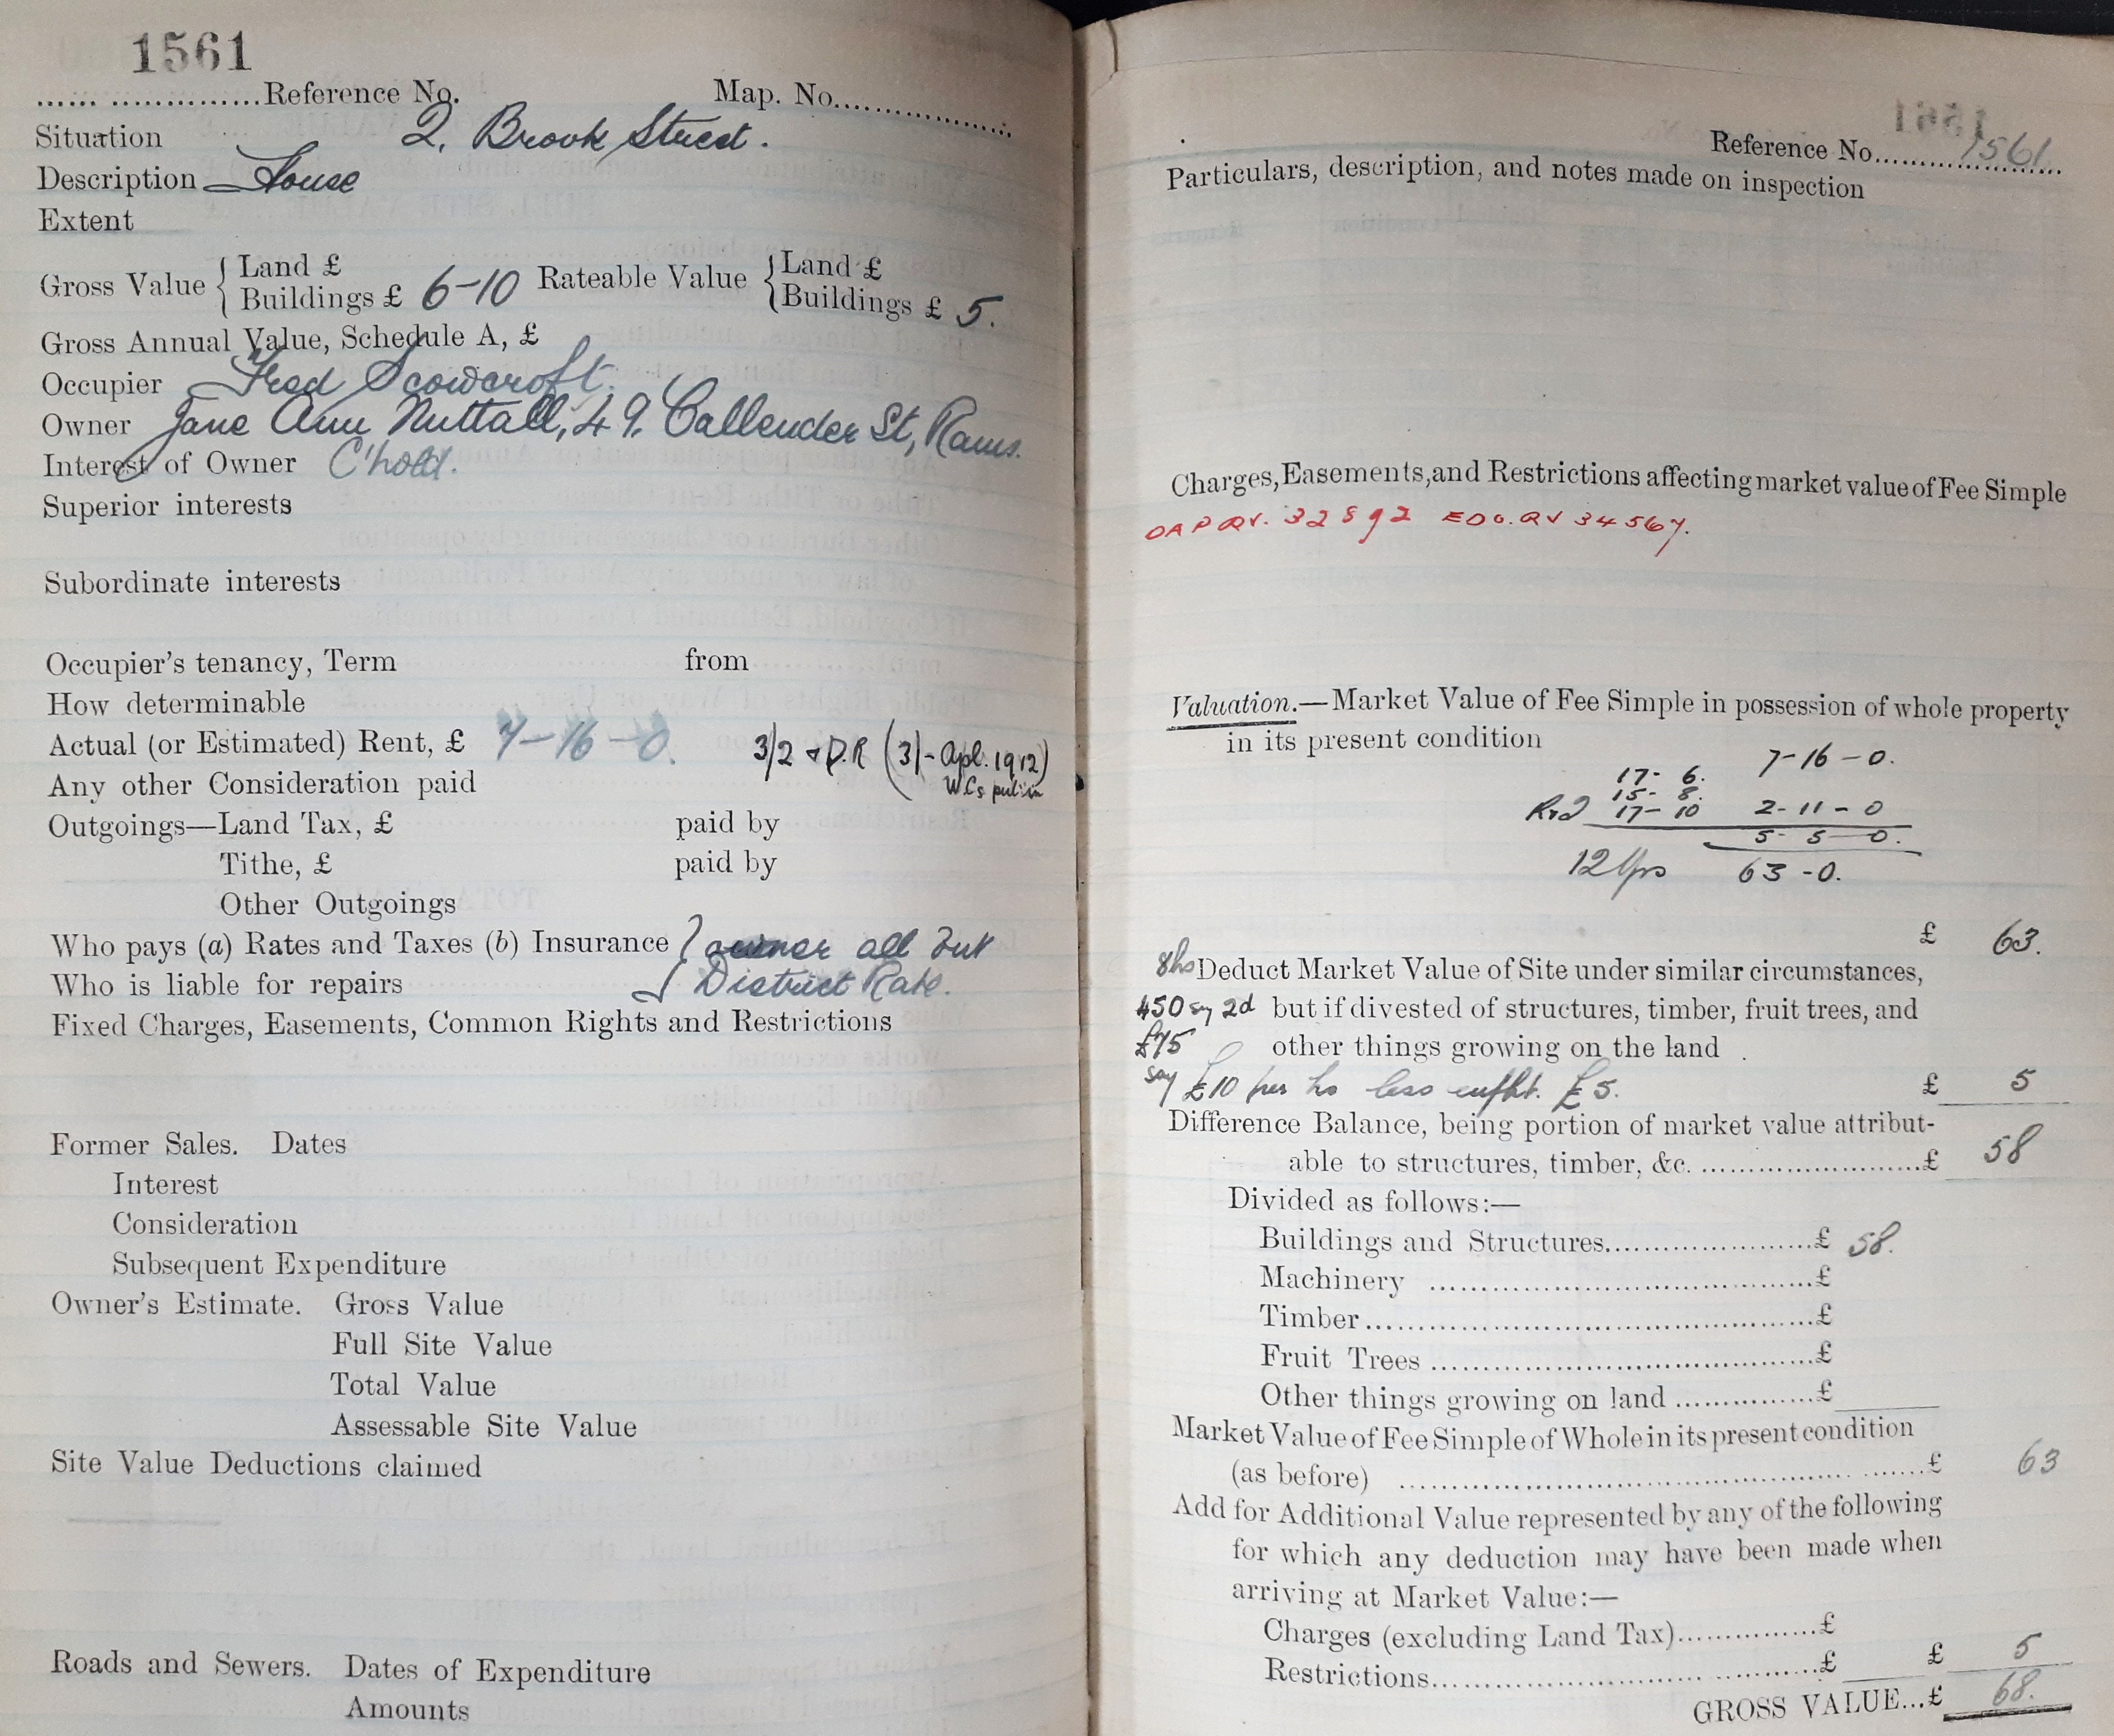 1561
...... ..............Reference No. Map. No..................
Situation 2, Brook Street.
Description House
Extent
Gross Value { Land £ Rateable Value { Land £
Buildings £ 6-10 Buildings £ 5.
Gross Annual Value, Schedule A, £
Occupier Fred Scowcroft.
Owner Jane Ann Nuttall, 49. Callender St, Rams.
Interest of Owner C'hold.
Superior interests
Subordinate interests
Occupier's tenancy, Term from
How determinable
Actual (or Estimated) Rent, £ 7-16-0. 3/2 & D.R (3/- Apl. 1912)
W.Cs put in
Any other Consideration paid
Outgoings—Land Tax, £ paid by
Tithe, £ paid by
Other Outgoings
Who pays (a) Rates and Taxes (b) Insurance } owner all but
Who is liable for repairs District Rate.
Fixed Charges, Easements, Common Rights and Restrictions
Former Sales. Dates
Interest
Consideration
Subsequent Expenditure
Owner's Estimate. Gross Value
Full Site Value
Total Value
Assessable Site Value
Site Value Deductions claimed
Roads and Sewers. Dates of Expenditure
Amounts
Reference No. 1561.
Particulars, description, and notes made on inspection
Charges, Easements, and Restrictions affecting market value of Fee Simple
32892 34567.
Valuation.—Market Value of Fee Simple in possession of whole property
in its present condition
7-16-0.
17- 6.
15- 8.
17- 10 2-11-0
5- 5-0.
12 Yrs 63-0.
£ 63.
8hs Deduct Market Value of Site under similar circumstances,
450 sy 2d but if divested of structures, timber, fruit trees, and
£75 other things growing on the land
say £10 per hs less enfht. £5.
£ 5
Difference Balance, being portion of market value attribut-
able to structures, timber, &c. ..........................£ 58
Divided as follows:—
Buildings and Structures.......................£ 58.
Machinery ..........................................£
Timber................................................£
Fruit Trees ..........................................£
Other things growing on land ...............£
Market Value of Fee Simple of Whole in its present condition
(as before) ..................................................£ 63
Add for Additional Value represented by any of the following
for which any deduction may have been made when
arriving at Market Value:—
Charges (excluding Land Tax)...............£
Restrictions.......................................£ £ 5
GROSS VALUE...£ 68.